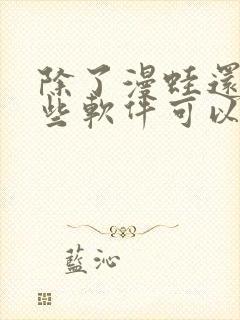 除了漫蛙還
些軟件可以
藍沁